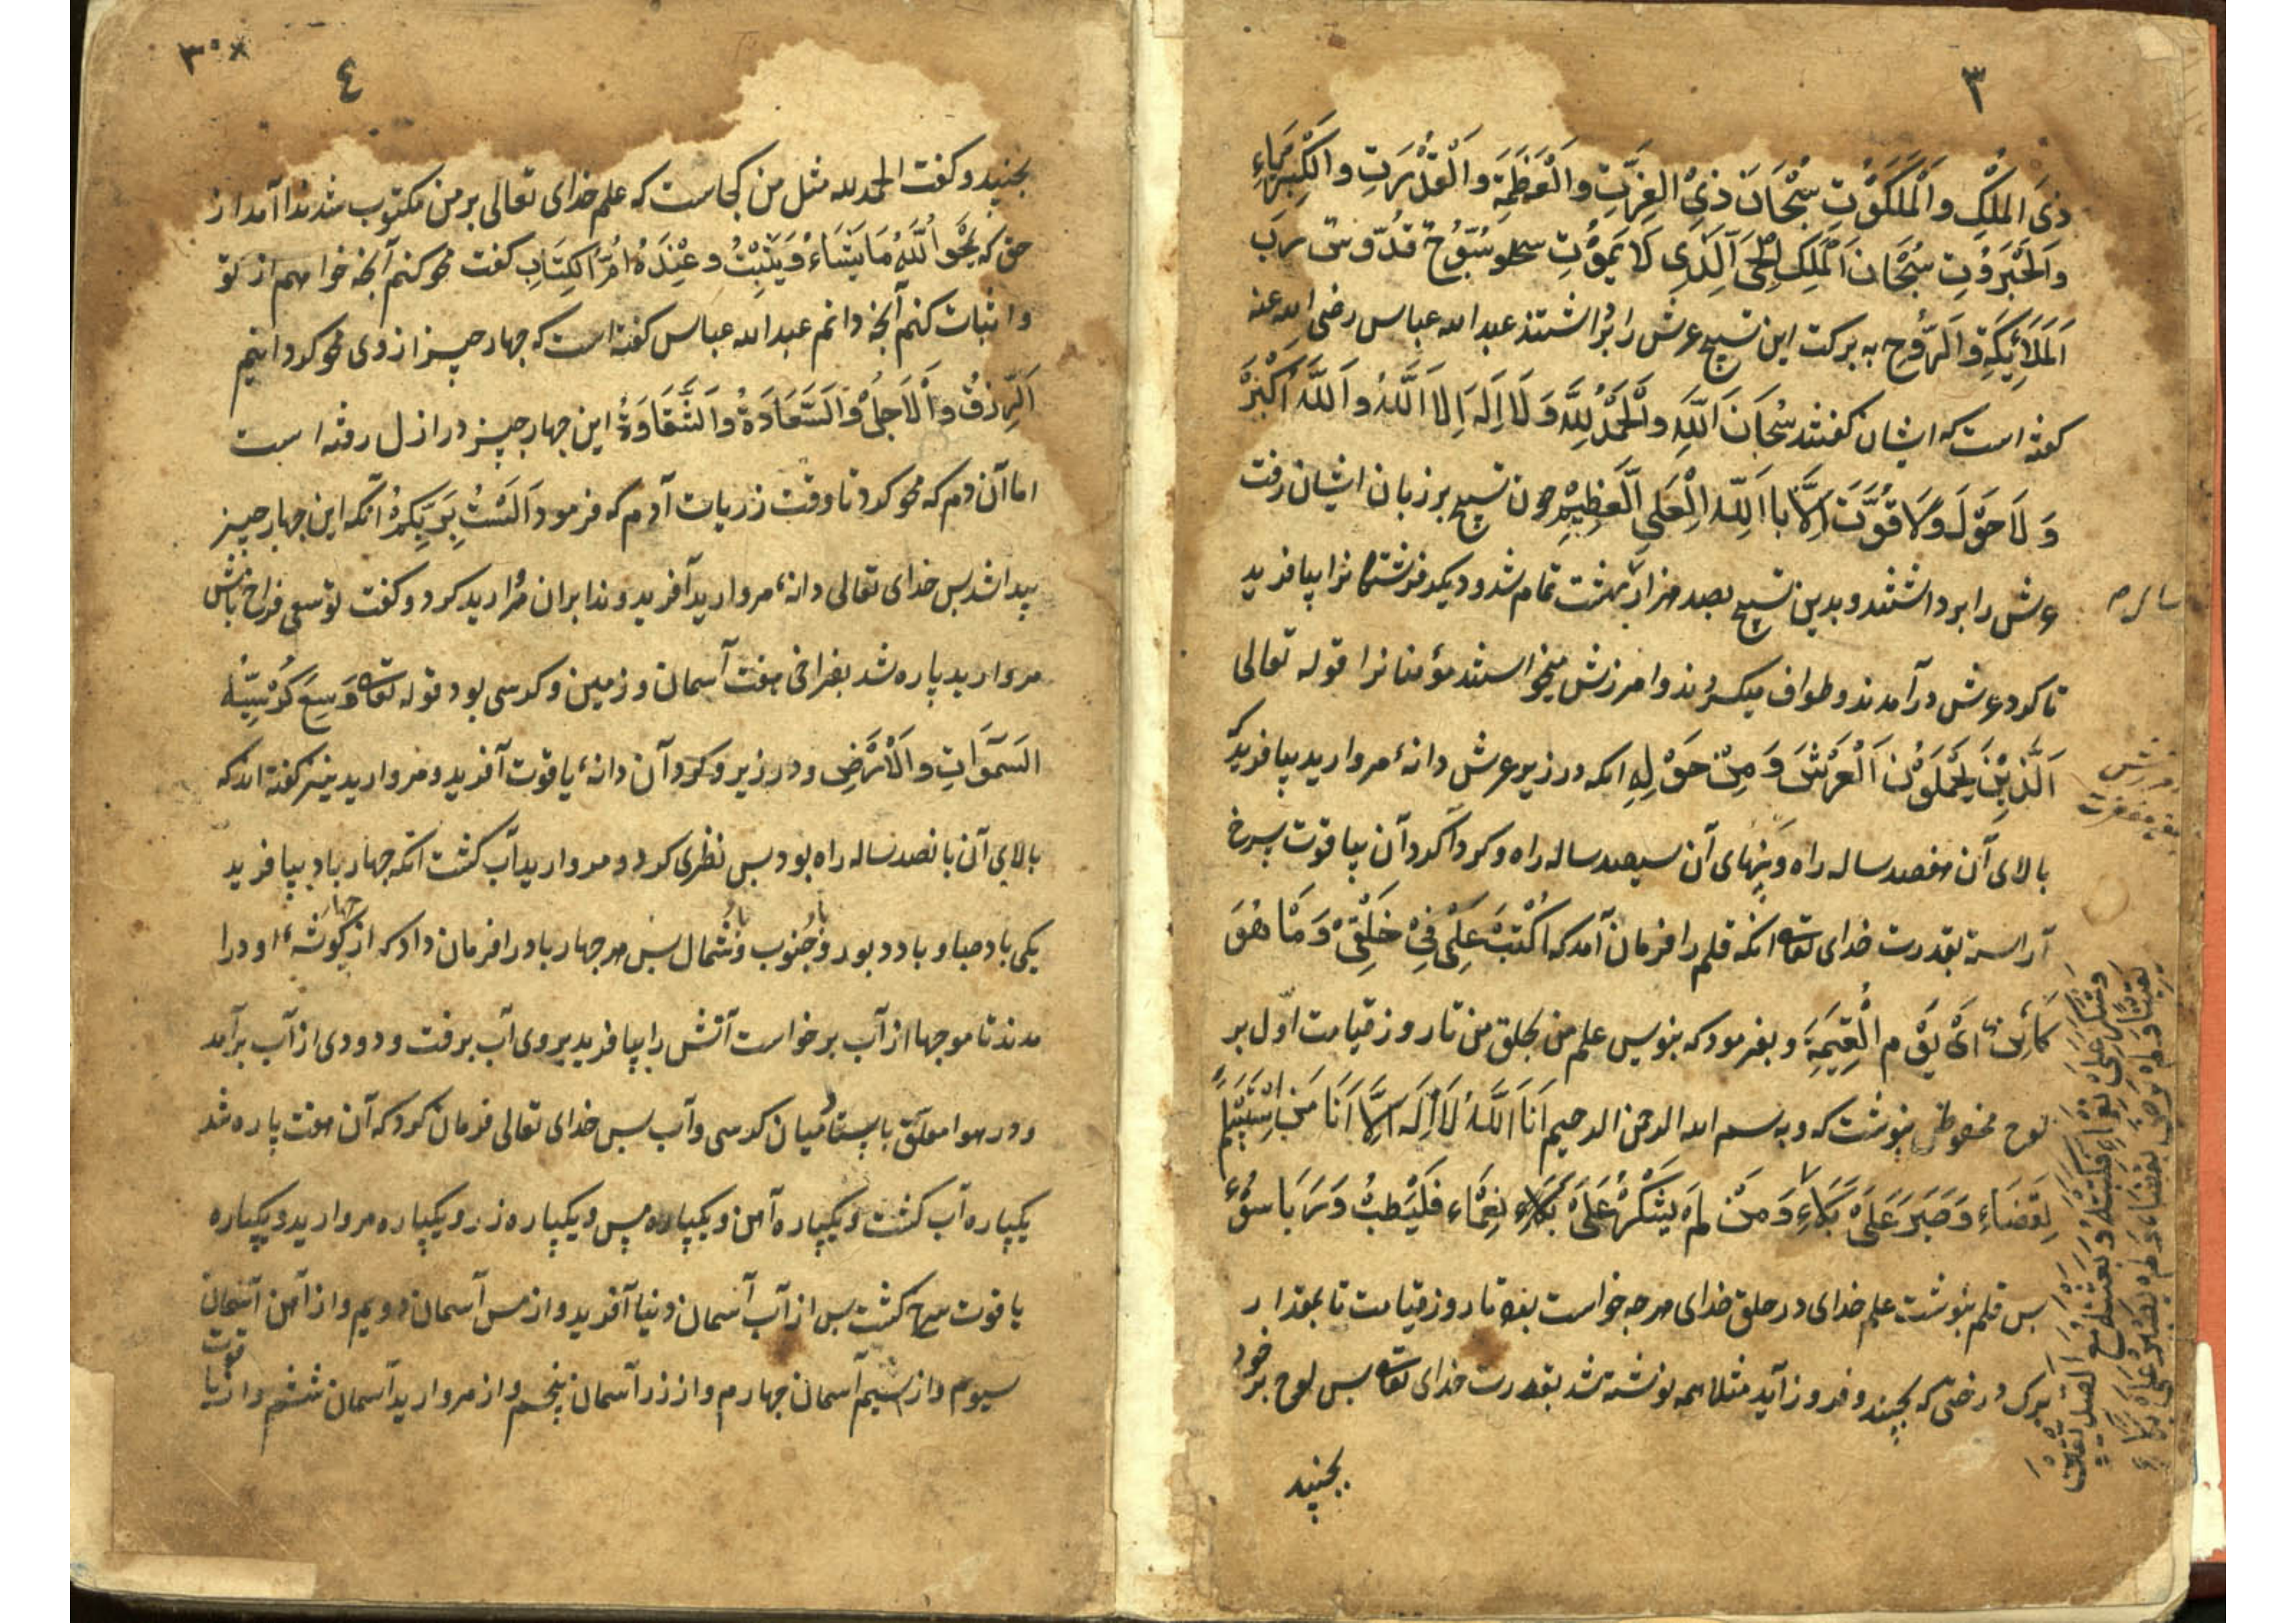 ٣
ذِی المُلْکِ وَالْمَلَکُوْتِ سُبْحَانَ ذِیْ العِزَّتِ وَالْعَظَمَةِ وَالْقُدْرَتِ وَالکِبْرِیَاءِ
وَالْجَبَرُوْتِ سُبْحَانَ الْمَلِکِ الْحَیِّ الَّذِی لَا یَمُوْتِ سُبُّوْحٌ قُدُّوسٌ رَبُّ
اَلْمَلَائِکَةِ وَالرُّوْحِ به برکت این تسبیح عرش را برداشتند عبد الله عباس رضی الله عنه
کفته است که ایشان کفتند سُبْحَانَ اللَّهِ وَالْحَمْدُ لِلَّهِ وَلَا اِلَهَ اِلَا اللَّهُ وَاَللَّهُ اَکْبَرُ
وَ لَا حَوْلَ وَلَا قُوَّتَ اِلَّا بِااللّٰهِ الْعَلِیِ الْعَظِیْمِ چون تسبیح بر زبان ایشان رفت
عرش را برداشتند و بدین تسبیح بصد هزار بهشت تمام شد و دیکر فرشتکانرا بیافرید
تا کرد عرش در آمدند و طواف میکردند و امرزش میخواستند مؤمنانرا قوله تعالی
اَلَّذِیْنَ یَحْمِلَوْنَ الْعَرْشَ وَ مِنْ حَوْلِهِ انکه در زیر عرش دانهٔ مروارید بیافرید که
بالای آن هفصد ساله راه و پنهای آن سیصد ساله راه و کرداکرد آن بیاقوت سرخ
آراسته بقدرت خدای تعالی انکه قلم را فرمان آمد که اُکْتُبْ عِلْمِیْ فِیْ خَلْقِیْ وَ مَا هُوَ
کَائِنٌ اِیٰ یَوْمِ الْقِیٰمَةِ و بفرمود که بنویس علم من بخلق من تا روز قیامت اوّل بر
لوح محفوظ بنوشت که و بسم الله الرحمن الرحیم اَنَا اللَّهُ لَا اِلَهَ اِلَّا اَنَا مَنِ اسْتَسْلَمَ
لِقَضَاءِ وَ صَبَرَ عَلَیٰ بَلَاءِ وَ مَنْ لَمْ یَشْکُرْ عَلَیٰ نِعْمَاءِ فَلْیَطْلُبْ رَبَّا سِوْیٰ
بس قلم بنوشت علم خدای در خلق خدای هرچه خواست بود تا روز قیامت تا بمقدار
برک درختی که بجنبد و فروز آید مثلا همه نوشته شد بقدرت خدای تعالی بس لوح بر خود
بجنبید
٣٠×
٤
بجنبید و کفت الحمد لله مثل من کجاست که علم خدای تعالی بر من مکتوب شد ندا آمد از
حق که یَمْحُوا اللَّهُ مَا یَشَاءُ وَیُثْبِتُ وَ عِنْدَهُ اُمُّ الکِتَابِ کفت محو کنم آنچه خواهم از تو
و اثبات کنم آنچه دانم عبد الله عباس کفته است که چهار چیز از وی محو کرد و اینم
اَلرِّزْقُ وَالْاَجَلُ وَالسَّعَادَةُ وَالشَّقَاوَةُ این چهار چیز در ازل رفته است
اما آن دم که محو کرد تا وقت زریات آدم که فرمود اَلَسْتُ بِرَبِّکُمْ انکه این چهار چیز
پیدا شد بس خدای تعالی دانهٔ مروارید آفرید و ندا بران مروارید کرد و کفت توسعی فراخ باش
مروارید پاره شد بفراخی هفت آسمان و زمین و کرسی بود قوله تعالی وَسِعَ کُرْسِیُّهُ
السَمَوَاتِ وَالْاَرْضِ و در زیر و کرد آن دانهٔ یاقوت آفرید و مروارید نیز کفته اند که
بالای آن بانصد ساله راه بود بس نظری کرد و مروارید آب کشت انکه چهار باد بیافرید
یکی باد صبا و باد دبور و باد جنوب و باد شمال بس هر چهار باد را فرمان داد که از چهار کوشهٔ او درا
مدند تا موجها از آب برخواست آتش را بیافرید بر وی آب برفت و دودی از آب برآمد
و در هوا معلّق بایستاد میان کرسی و آب بس خدای تعالی فرمان کرد که آن هفت پاره شد
یکپاره آب کشت و یکپاره آهن و یکپاره مس و یکپاره زر و یکپاره مروارید و یکپاره
یاقوت سرخ کشت بس از آب آسمان دنیا آفرید و از مس آسمان دویم و از آهن آسمان
سیوم و از سیم آسمان چهارم و از زر آسمان پنجم و از مروارید آسمان ششم و از یاقوت